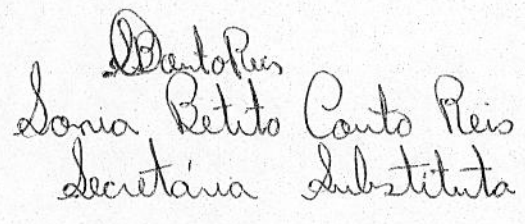 SBCoutoReis
Sonia Betito Couto Reis
Secretária Substituta